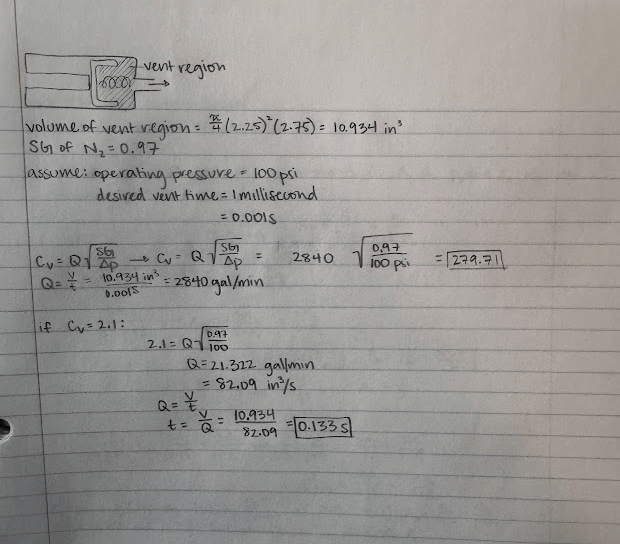 vent region
volume of vent region = π/4 (2.25)²(2.75) = 10.934 in³
SG of N₂ = 0.97
assume: operating pressure = 100 psi
desired vent time = 1 millisecond
= 0.001s
Cv = Q√(SG/Δp) → Cv = Q√(SG/Δp) = 2840 √(0.97/100 psi) = 279.71
Q = V/t = 10.934 in³/0.001s = 2840 gal/min
if Cv = 2.1:
2.1 = Q√(0.97/100)
Q = 21.322 gal/min
= 82.09 in³/s
Q = V/t
t = V/Q = 10.934/82.09 = 0.133 s